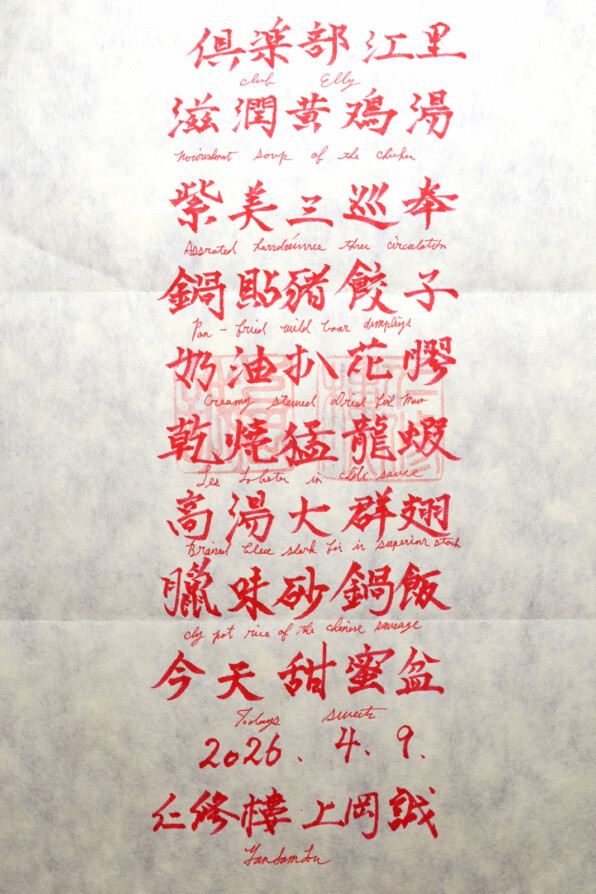 倶楽部 江里
club Elly
滋潤黄鶏湯
soup of the chicken
紫美三巡奉
Assorted three circulation
鍋貼豬餃子
Pan-fried wild boar
奶油扒花膠
Creamy stewed dried
乾焼猛龍蝦
Lobster in chili sauce
高湯大群翅
Braised blue shark fin in superior stock
臘味砂鍋飯
cly pot rice of the chinese sausage
今天甜蜜盆
Todays sweets
2026. 4. 9.
仁修樓 上岡誠